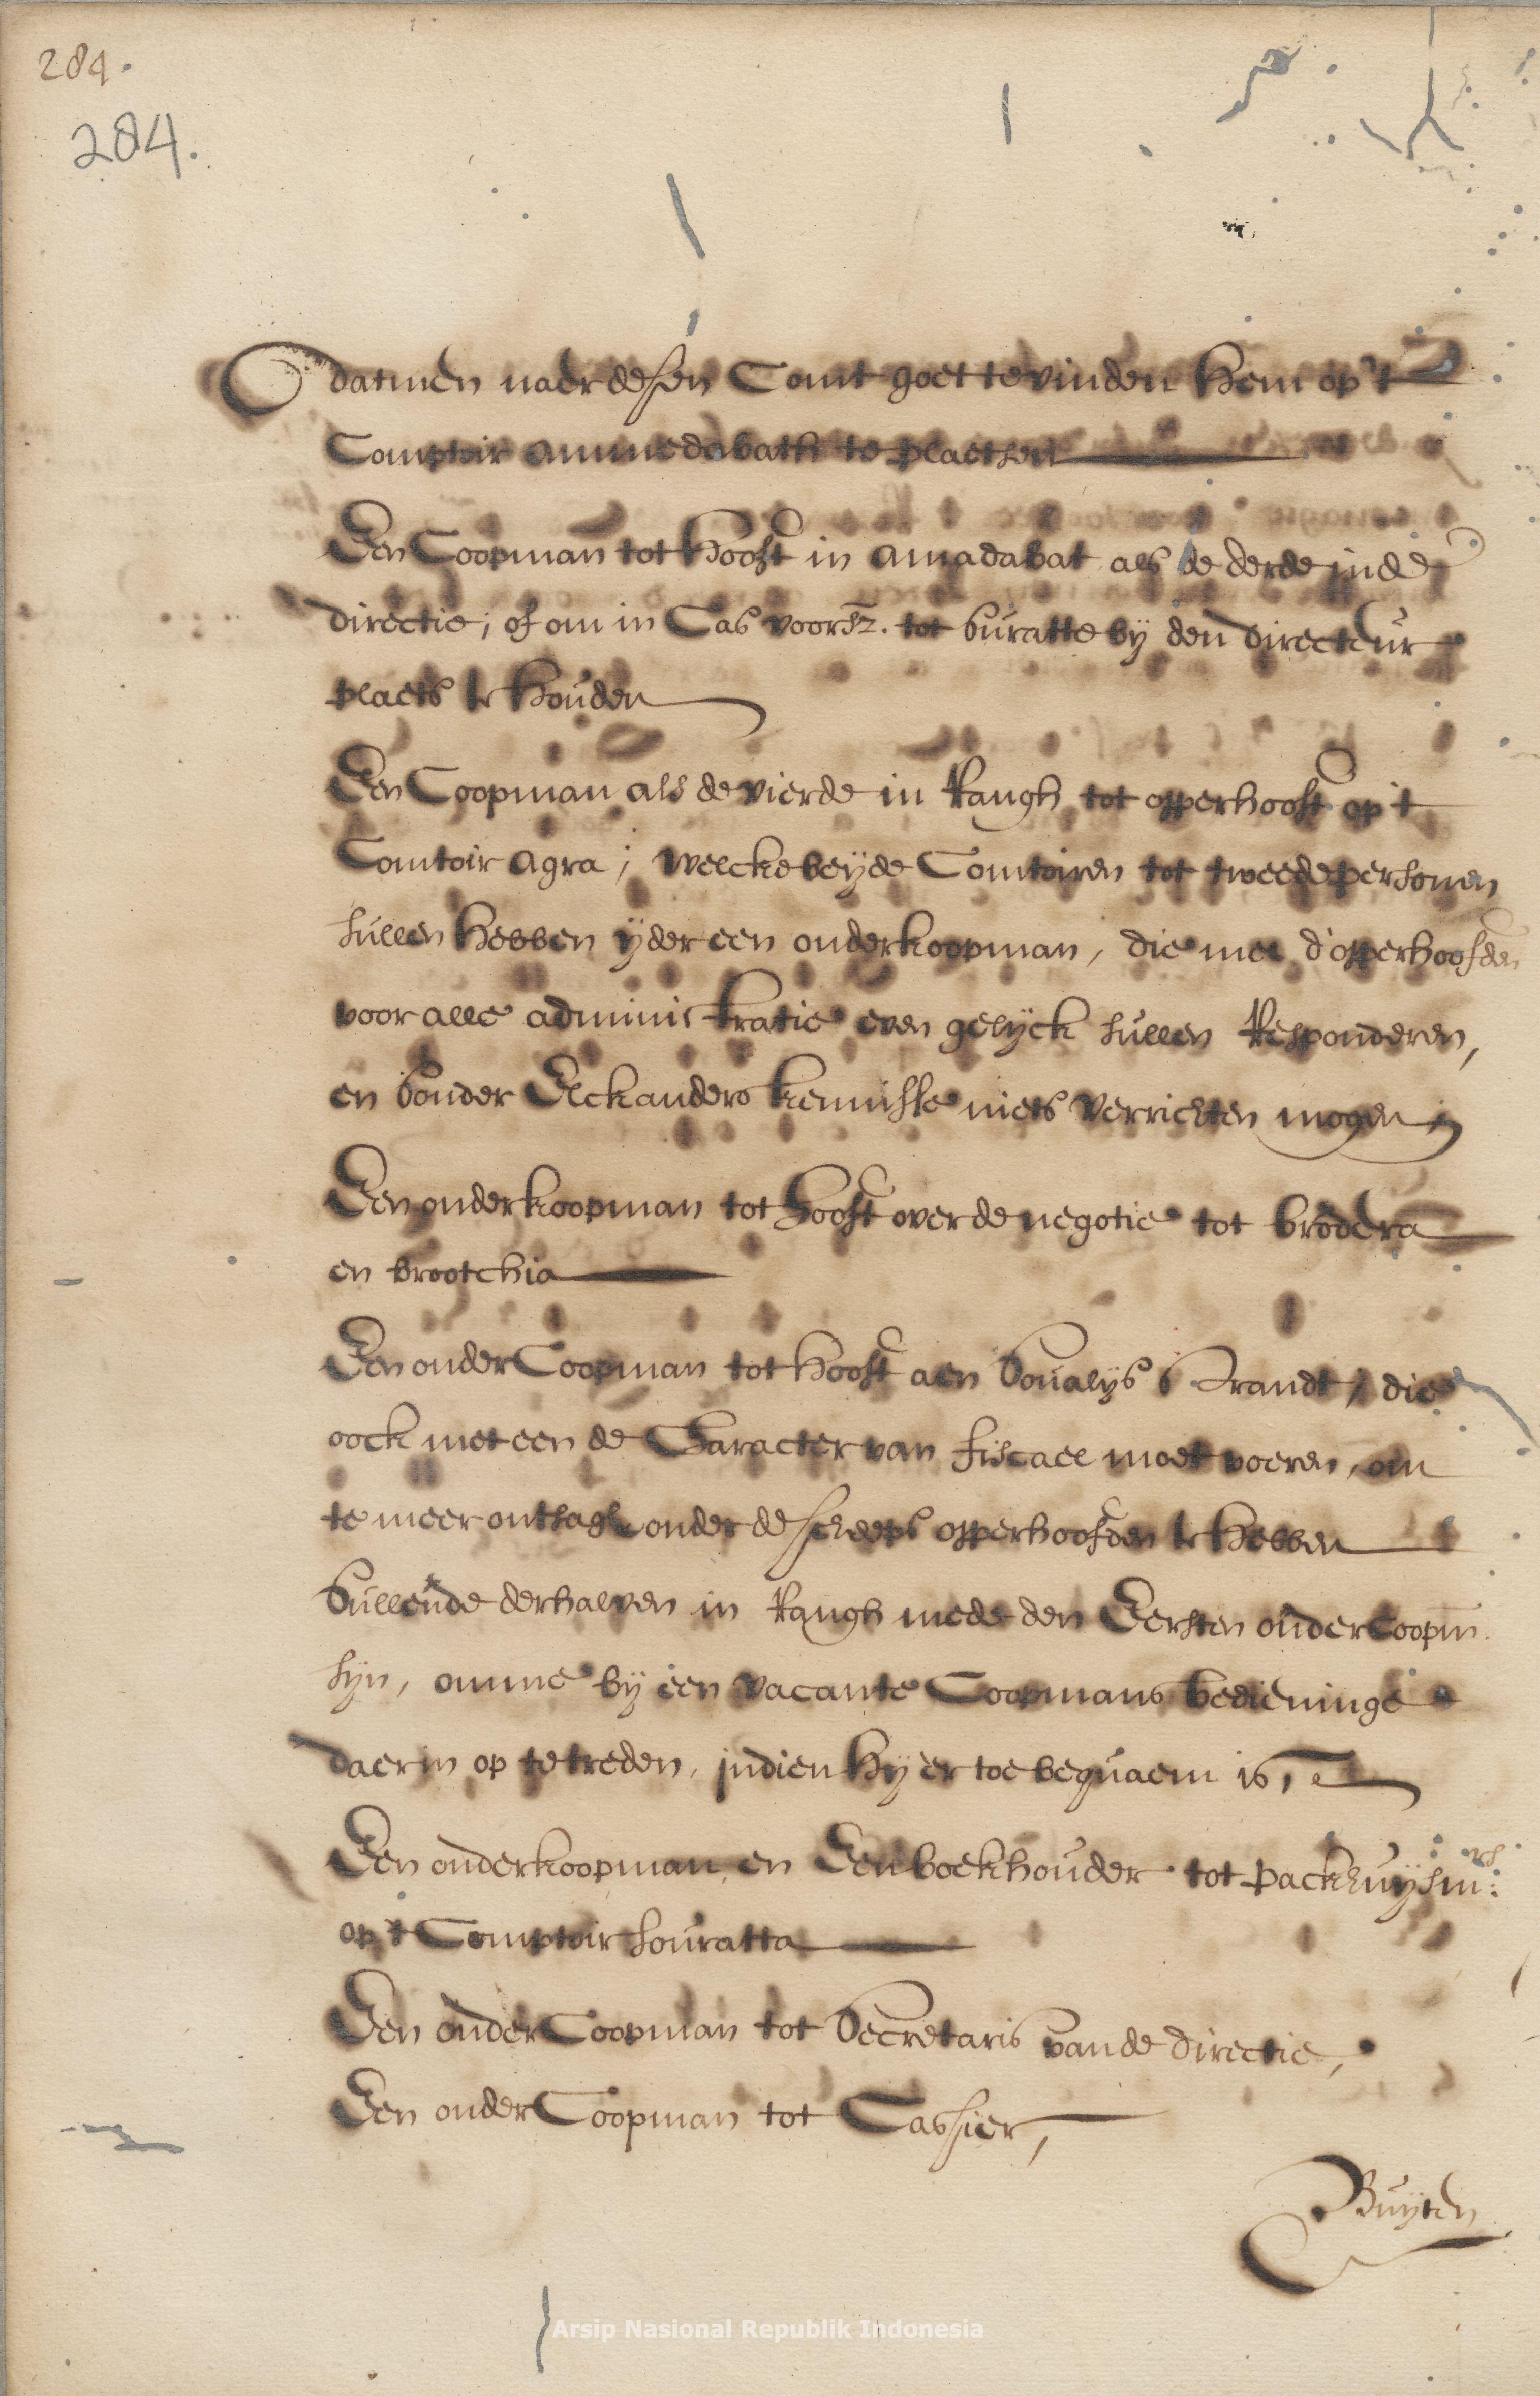 284.
284.
datmen naer desen Comt goet te vinden hem op 't
Comptoir Ammedabath te plaetsen
Een Coopman tot hooft in Amadabat als de derde inde
directie, of om in Cas voorsz. tot Suratte by den directeur
plaets te houden
Een Coopman als de vierde in Rangh tot opperhooft op 't
Comtoir Agra; welcke beyde Comtoiren tot tweede persoonen
sullen hebben yder een onderkoopman, die met d'opperhoofden
voor alle administratie even gelyck sullen Responderen,
en sonder Elckanders kennisse niets verrichten mogen
Een onderkoopman tot hooft over de negotie tot brodera
en brootchia
Een onder Coopman tot hooft aen Soualys Strandt, die
oock met een de Character van fiscael moet voeren, om
te meer ontsagh onder de scheeps opperhoofden te hebben
Sullende derhalven in Rangh mede den Eersten onder Coopm.
syn, omme by een vacante Coopmans bedieninge
daerin op te treden, indien hy er toe bequaem is,
Een onderkoopman en Een boekhouder tot packhuysmrs:
op 't Comptoir souratta
Een onder Coopman tot Secretaris vande directie,
Een onder Coopman tot Cassier,
Buyten
Arsip Nasional Republik Indonesia